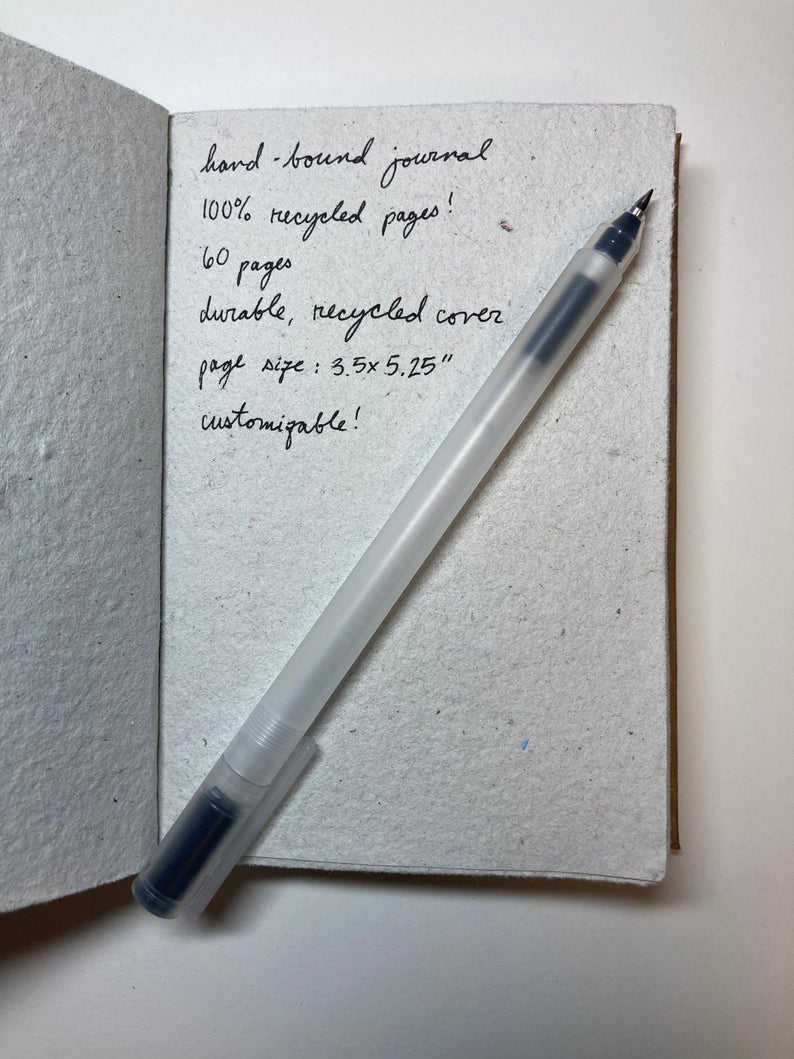 hand-bound journal
100% recycled pages!
60 pages
durable, recycled cover
page size: 3.5x5.25"
customizable!